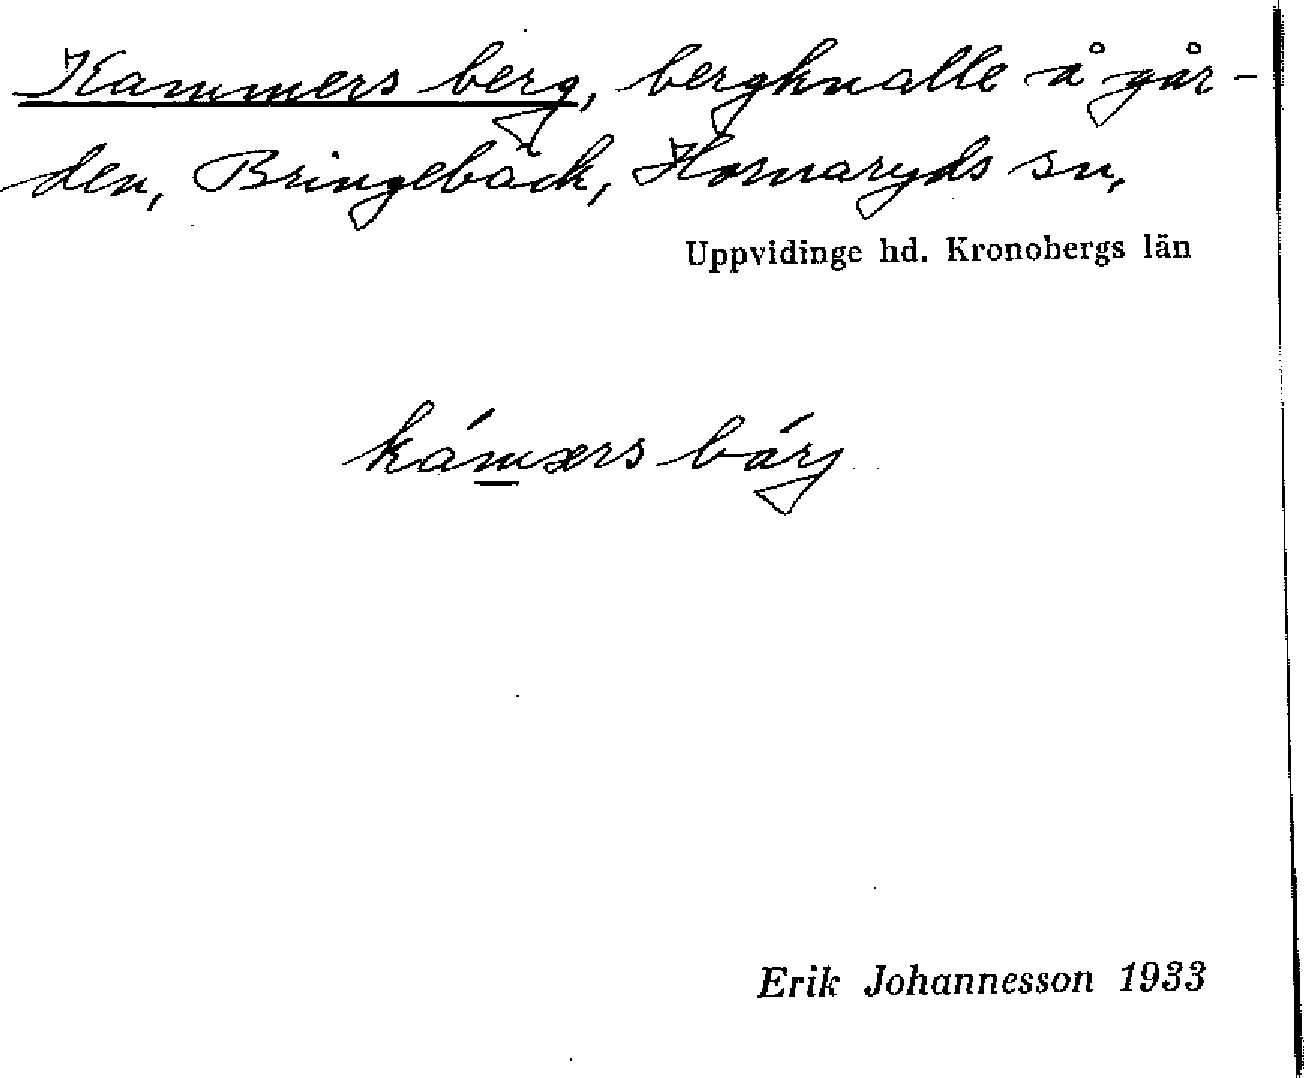 Kammers berg, bergknalle å går-
den, Bringebäck, Hornaryds sn,
Uppvidinge hd. Kronobergs län
kám̲ærs bárj
Erik Johannesson 1933